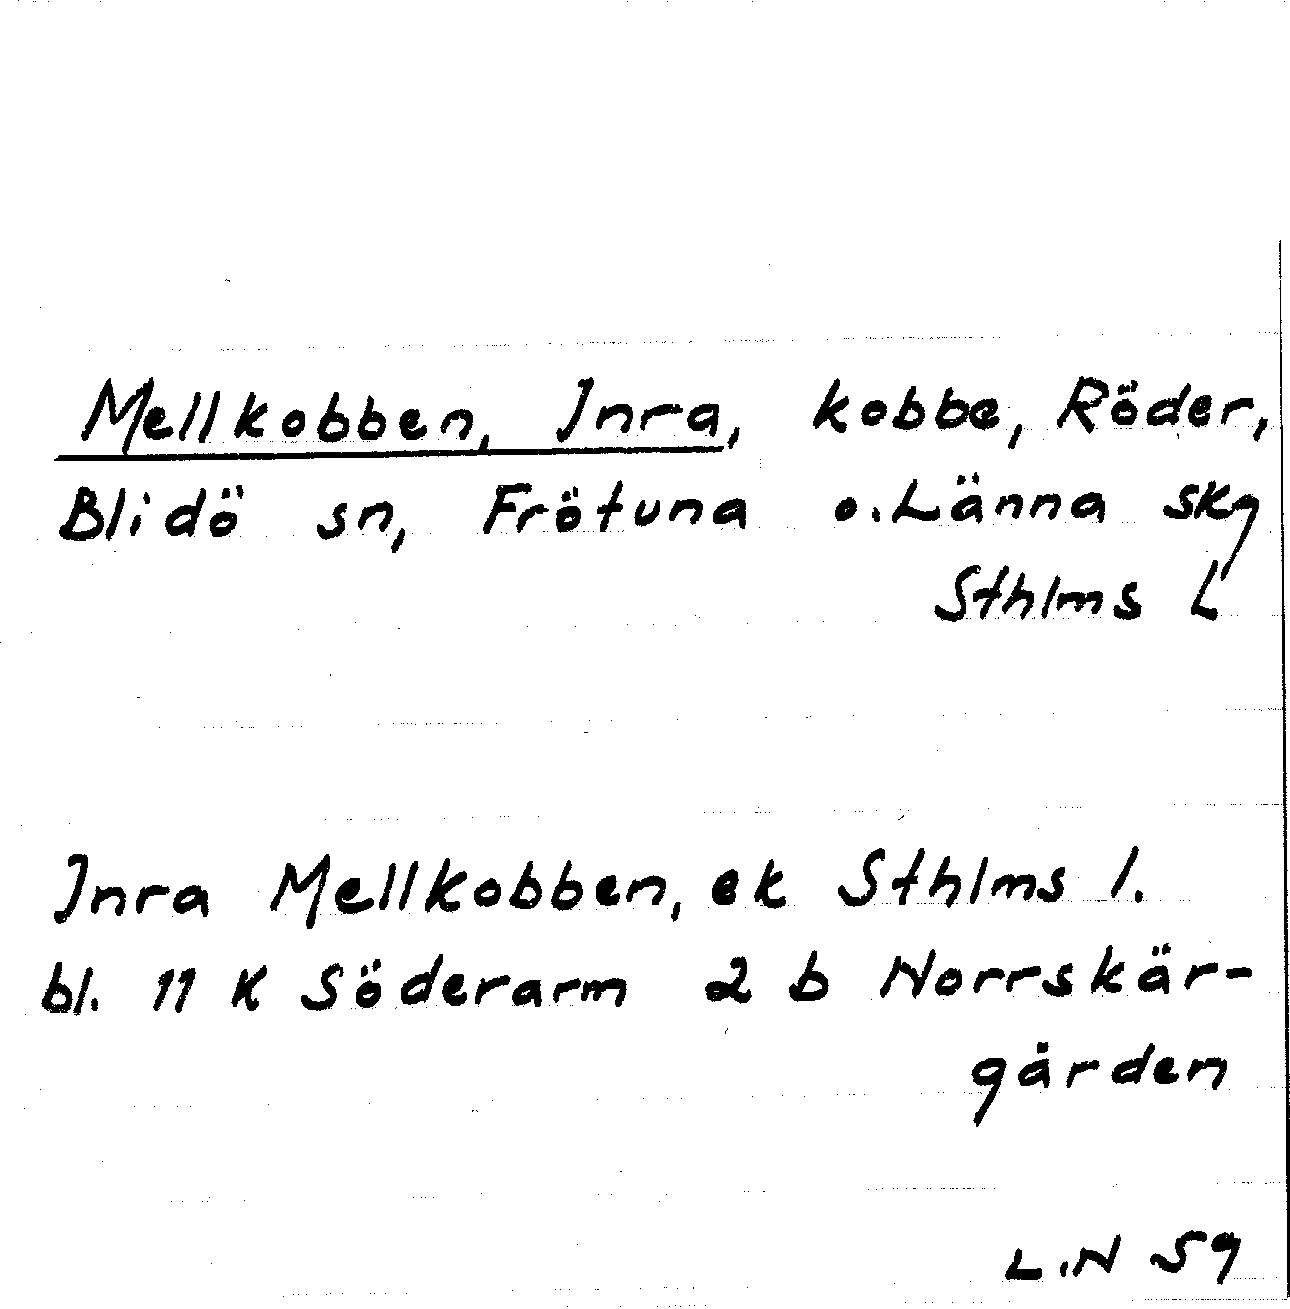 Mellkobben, Inra, kobbe, Röder,
Blidö sn, Frötuna o. Länna skg
Sthlms L
Inra Mellkobben, ek Sthlms l.
bl. 11 K Söderarm 2 b Norrskär-
gården
L.N 59